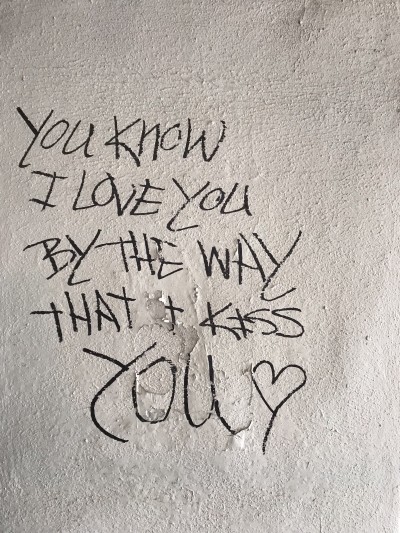 YOU KNOW
I LOVE YOU
BY THE WAY
THAT I KISS
YOU